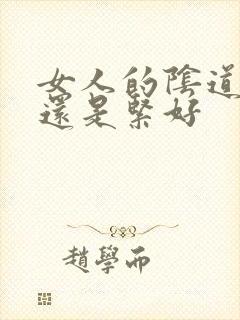 女人的陰道
還是緊好
趙學而